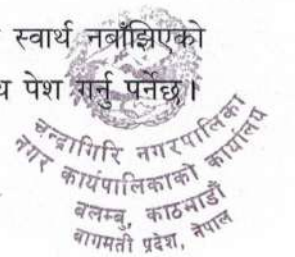 स्वार्थ नबाँझिएको
पेश गर्नु पर्नेछ।
चन्द्रागिरि नगरपालिका
नगर कार्यपालिकाको कार्यालय
बलम्बु, काठमाडौं
बागमती प्रदेश, नेपाल